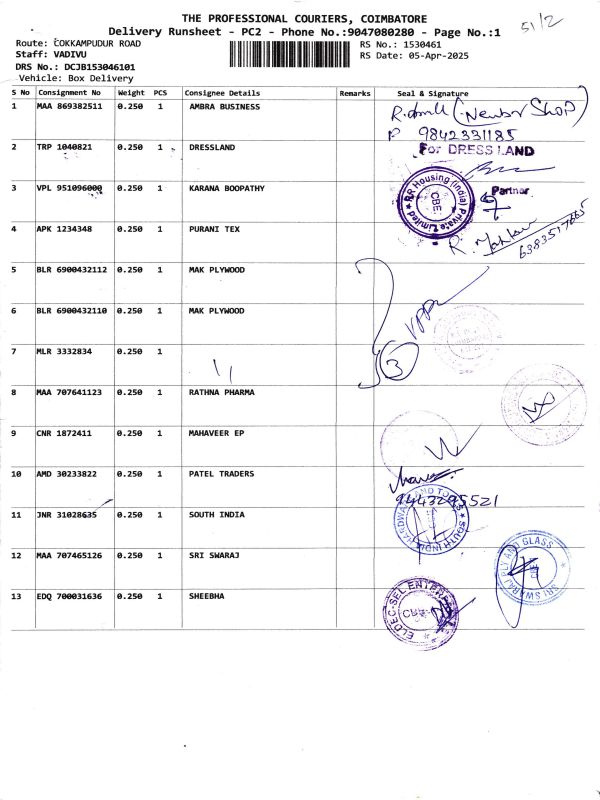 THE PROFESSIONAL COURIERS, COIMBATORE
51/2
Delivery Runsheet - PC2 - Phone No.:9047080280 - Page No.:1
Route: COKKAMPUDUR ROAD
RS No.: 1530461
Staff: VADIVU
RS Date: 05-Apr-2025
DRS No.: DCJB153046101
Vehicle: Box Delivery
S No Consignment No Weight PCS Consignee Details Remarks Seal & Signature
1 MAA 869382511 0.250 1 AMBRA BUSINESS
Shop)
P 9842331185
2 TRP 1040821 0.250 1 DRESSLAND
For DRESS LAND
Partner
3 VPL 951096000 0.250 1 KARANA BOOPATHY
RR Housing (India) Private Limited
CBE
4 APK 1234348 0.250 1 PURANI TEX
6383517665
5 BLR 6900432112 0.250 1 MAK PLYWOOD
6 BLR 6900432110 0.250 1 MAK PLYWOOD
7 MLR 3332834 0.250 1
3
8 MAA 707641123 0.250 1 RATHNA PHARMA
9 CNR 1872411 0.250 1 MAHAVEER EP
10 AMD 30233822 0.250 1 PATEL TRADERS
9443295521
11 JNR 31028635 0.250 1 SOUTH INDIA
SOUTH INDIA HARDWARE AND TOOLS
12 MAA 707465126 0.250 1 SRI SWARAJ
SRI SWARAJ PLY AND GLASS
13 EDQ 700031636 0.250 1 SHEEBHA
ELDEC-SEL ENTERPRISES